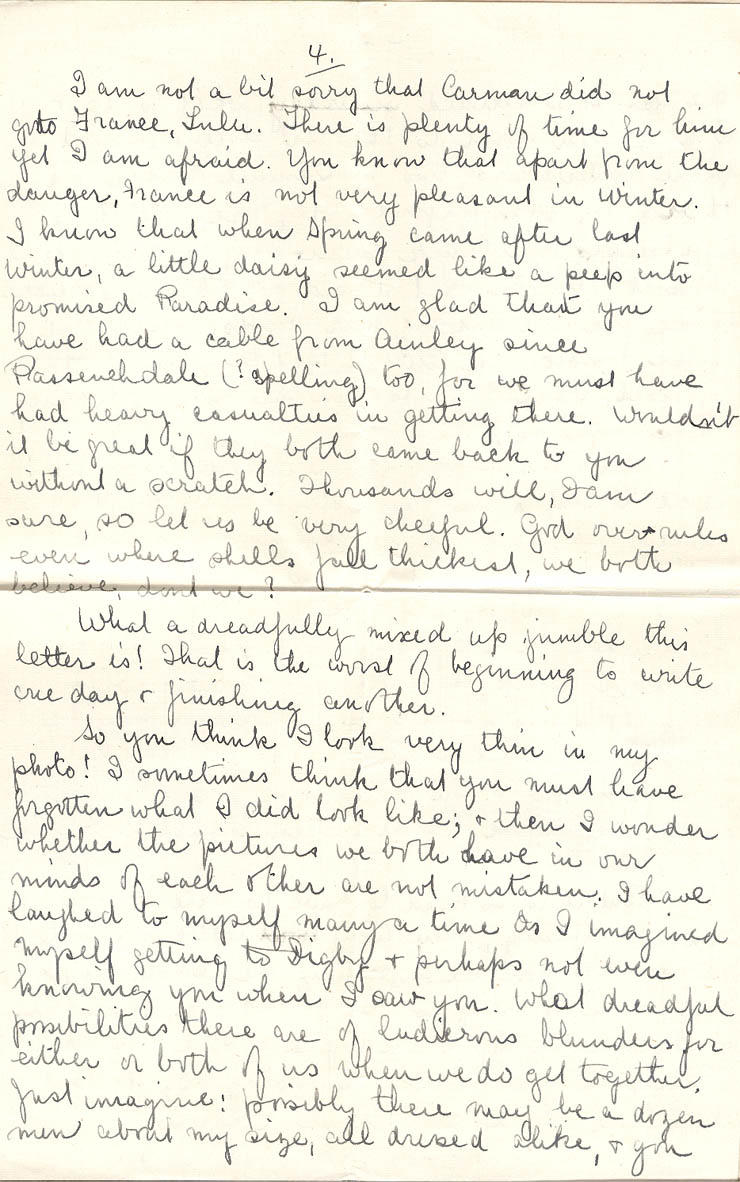 4.
I am not a bit sorry that Carman did not
go to France, Lulu. There is plenty of time for him
yet I am afraid. You know that apart from the
danger, France is not very pleasant in winter.
I know that when Spring came after last
winter, a little daisy seemed like a peep into
promised Paradise. I am glad that you
have had a cable from Ainley since
Passenchdale (? spelling) too, for we must have
had heavy casualties in getting there. Wouldn't
it be great if they both came back to you
without a scratch. Thousands will, I am
sure, so let us be very cheerful. God over-rules
even where shells fall thickest, we both
believe, dont we?
What a dreadfully mixed up jumble this
letter is! That is the worst of beginning to write
one day & finishing another.
So you think I look very thin in my
photo! I sometimes think that you must have
forgotten what I did look like; & then I wonder
whether the pictures we both have in our
minds of each other are not mistaken. I have
laughed to myself many a time as I imagined
myself getting to Digby & perhaps not even
knowing you when I saw you. What dreadful
possibilities there are of ludicrous blunders for
either or both of us when we do get together.
Just imagine: possibly there may be a dozen
men about my size, all dressed alike, & you